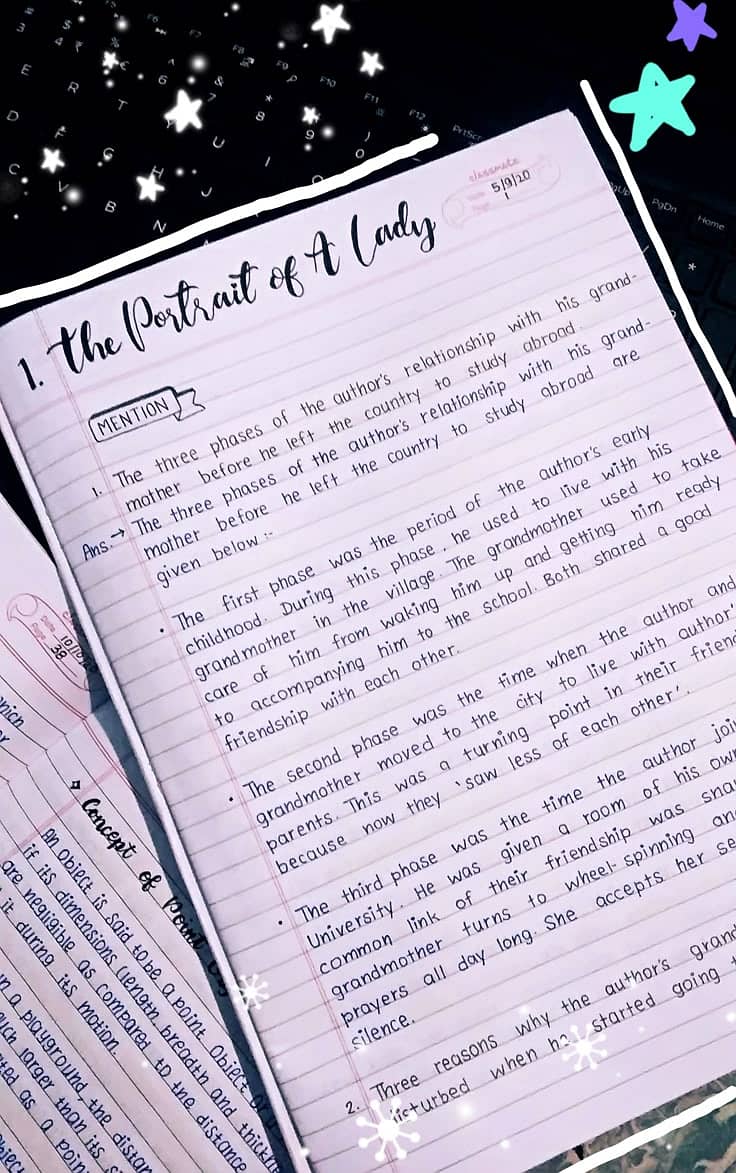 classmate
5/9/20
1
1. The Portrait of A Lady
MENTION
1. The three phases of the author's relationship with his grand-
mother before he left the country to study abroad.
Ans.→ The three phases of the author's relationship with his grand-
mother before he left the country to study abroad are
given below :-
• The first phase was the period of the author's early
childhood. During this phase, he used to live with his
grandmother in the village. The grandmother used to take
care of him from waking him up and getting him ready
to accompanying him to the school. Both shared a good
friendship with each other.
• The second phase was the time when the author and
grandmother moved to the city to live with author'
parents. This was a turning point in their friend
because now they 'saw less of each other'.
• The third phase was the time the author joi
University. He was given a room of his own
common link of their friendship was sna
grandmother turns to wheel-spinning an
prayers all day long. She accepts her se
silence.
2. Three reasons why the author's grand
disturbed when he started going
10/10
38
Concept of Point
An object is said to be a point object
if its dimensions (length, breadth and thick
are negligible as compared to the distance
it during its motion.
in a playground, the distan
much larger than its
as a poin
F6
F7
F8
F9
F10
F11
F12
PrtScr
PgUp
PgDn
Home
E
R
T
U
I
O
P
D
F
G
H
J
C
V
B
N
3
4
6
7
8
9